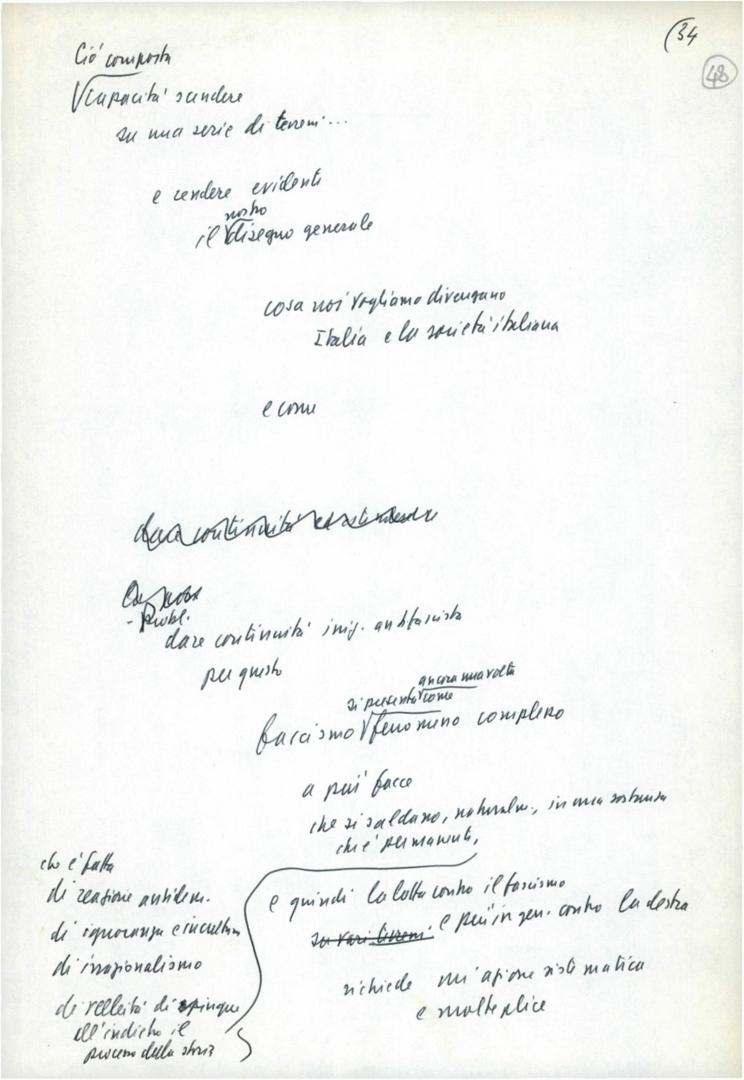 (34
48
Ciò comporta
capacità scendere
su una serie di terreni...
e rendere evidenti
nostro
il disegno generale
cosa noi vogliamo divengano
Italia e la società italiana
e come
dare continuità
- probl.
dare continuità inig. antifascista
per questo
ancora una volta
si presenta come
fascismo fenomeno complesso
a più facce
che si saldano, naturalm., in una sostanza
che è permanente,
che è fatta
di reazione antidem.
di ignoranza e incultura
di irrazionalismo
di velleità di spingere
all'indietro il
processo della storia
e quindi la lotta contro il fascismo
su vari terreni. e più in gen. contro la destra
richiede un'azione sistematica
e molteplice